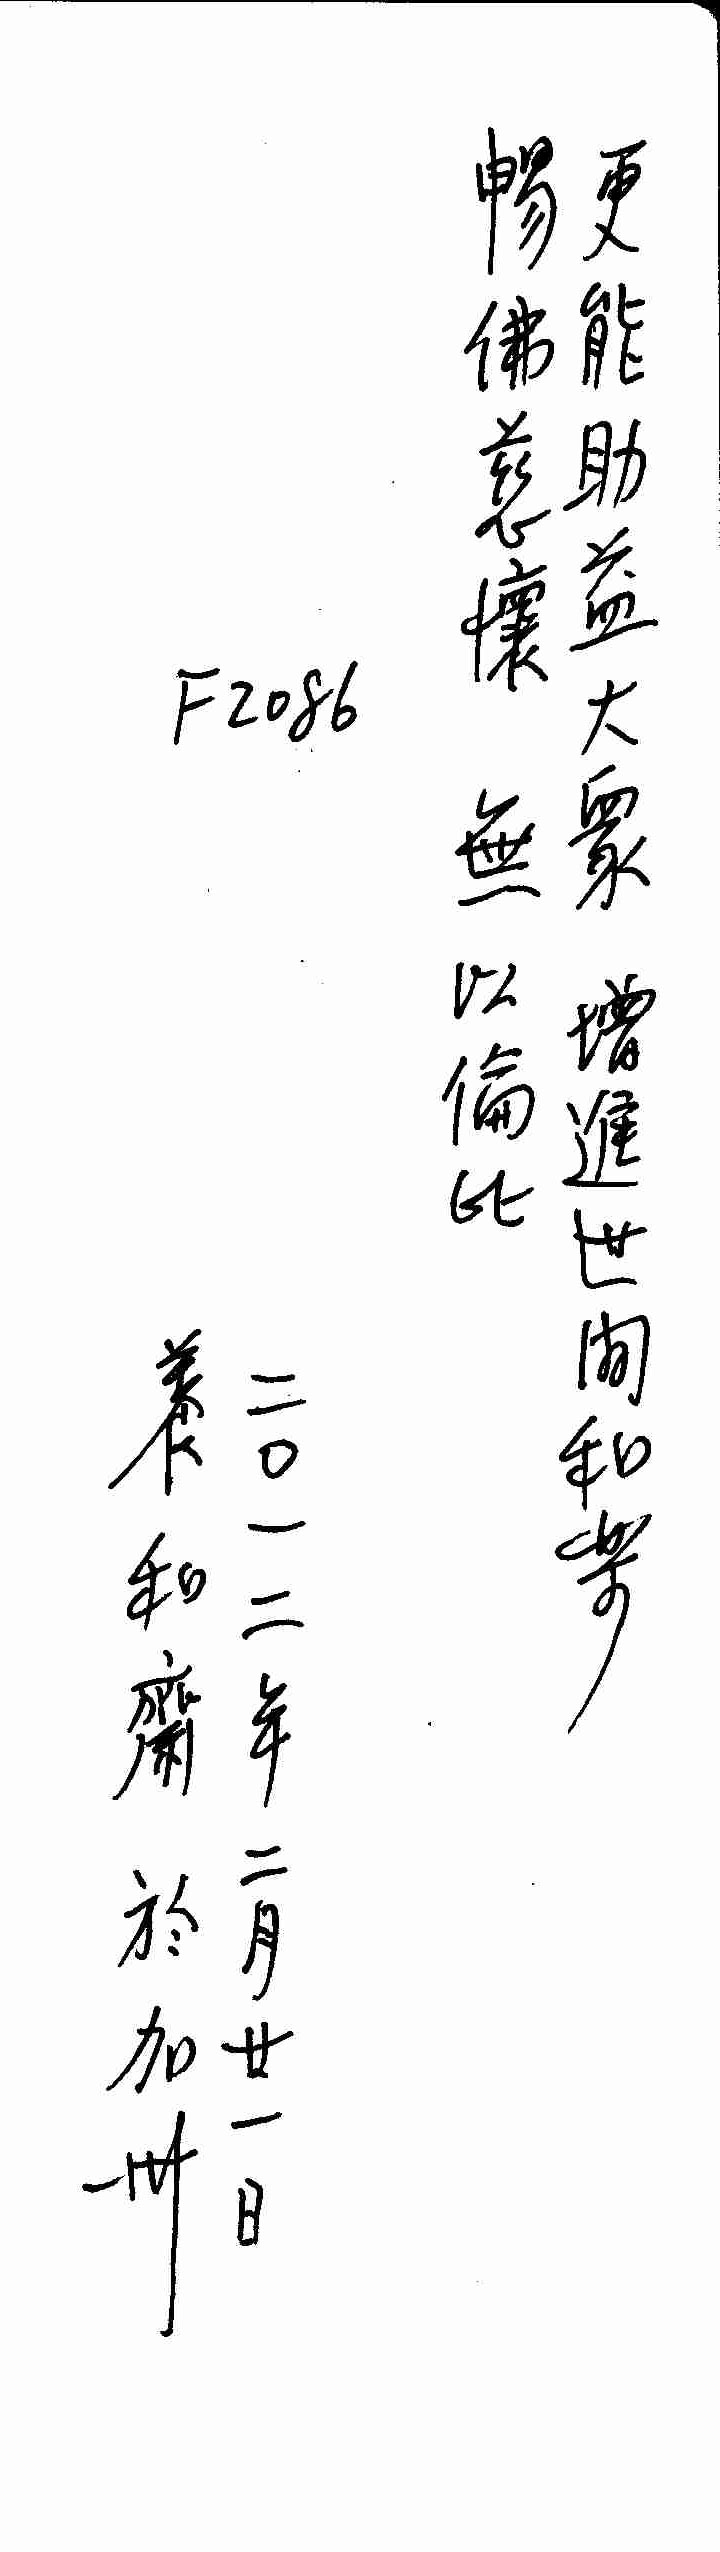 更能助益大眾 增進世间和樂
暢佛慈懷 無以倫比
F2086
二〇一二年二月廿一日
養和齋 於加州